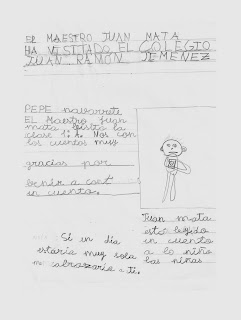 EL MAESTRO JUAN MATA
HA VISITADO EL COLEGIO
JUAN RAMÓN JIMENEZ
PEPE navarrete
EL Maestro Juan
mata bisitó la
clase 1º A. Nos con
los cuentos muy
gracios por
benir a cont
in cuento.
Juan mata
está leyido
in cuento
a lo niño
las niñas
Si un día
estaria muy sola
m cabrazaria a ti.